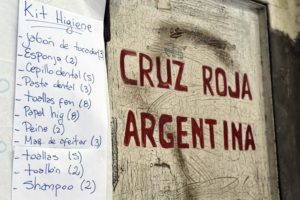 Kit Higiene
- Jabón de tocador (3)
- Esponja (2)
- Cepillo dental (5)
- Pasta dental (3)
- toallas fem (8)
- Papel hig (8)
- Peine (2)
- Maq. de afeitar (3)
- toallas (5)
- toallón (2)
- Shampoo (2)
CRUZ ROJA
ARGENTINA